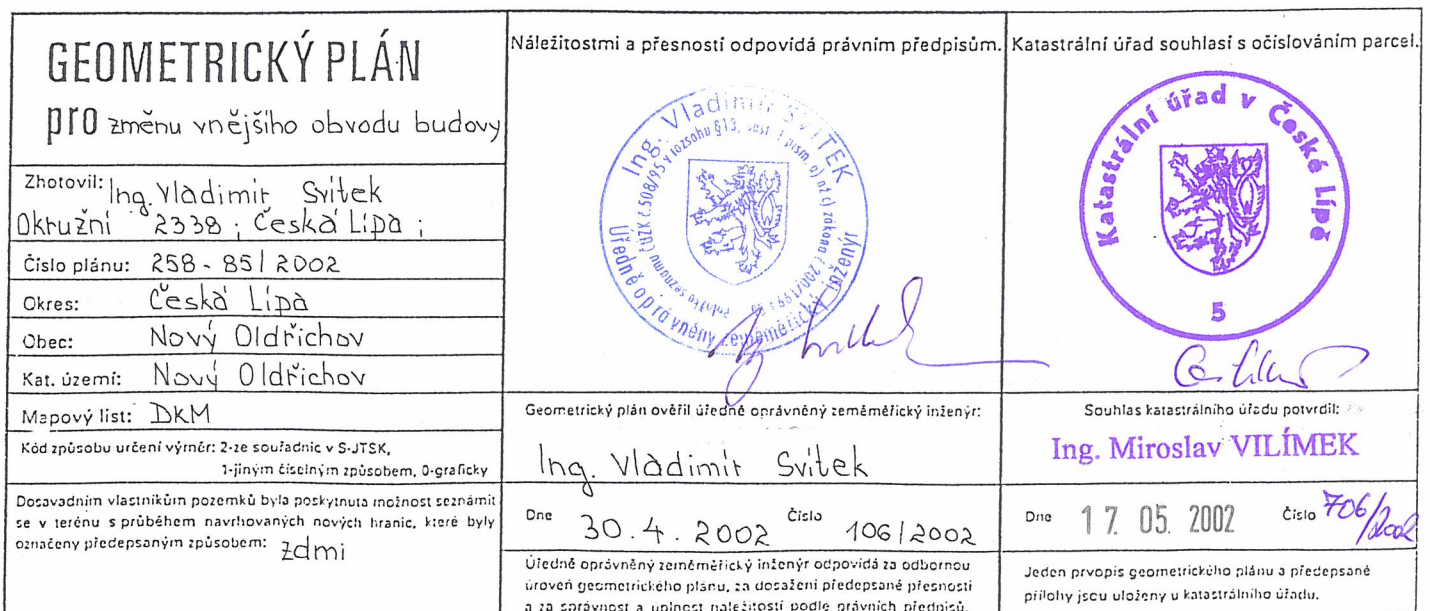 GEOMETRICKÝ PLÁN
pro změnu vnějšího obvodu budovy
Zhotovil: Ing. Vladimír Svítek
Okružní 2338 ; Česká Lípa ;
Číslo plánu: 258 - 85/2002
Okres: Česká Lípa
Obec: Nový Oldřichov
Kat. území: Nový Oldřichov
Mapový list: DKM
Kód způsobu určení výměr: 2-ze souřadnic v S-JTSK,
1-jiným číselným způsobem, 0-graficky
Dosavadním vlastníkům pozemků byla poskytnuta možnost seznámit
se v terénu s průběhem navrhovaných nových hranic, které byly
označeny předepsaným způsobem: zdmi
Náležitostmi a přesností odpovídá právním předpisům.
Ing. Vladimír SVÍTEK
Úředně oprávněný zeměměřický inženýr
Geometrický plán ověřil úředně oprávněný zeměměřický inženýr:
Ing. Vladimír Svítek
Dne 30.4.2002 Číslo 106/2002
Úředně oprávněný zeměměřický inženýr odpovídá za odbornou
úroveň geometrického plánu, za dosažení předepsané přesnosti
a za správnost a úplnost náležitostí podle právních předpisů.
Katastrální úřad souhlasí s očíslováním parcel.
Katastrální úřad v České Lípě
5
Souhlas katastrálního úřadu potvrdil:
Ing. Miroslav VILÍMEK
Dne 17. 05. 2002 Číslo 706/2002
Jeden prvopis geometrického plánu a předepsané
přílohy jsou uloženy u katastrálního úřadu.